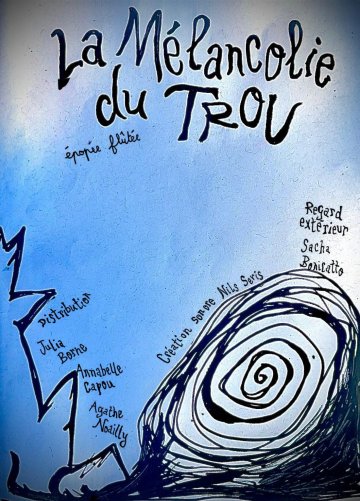 La Mélancolie
du TROU
épopée flûtée
Regard
extérieur
Sacha
Bonifatto
Création sonore Nils Soris
Distribution
Julia
Borne
Annabelle
Capou
Agathe
Noailly